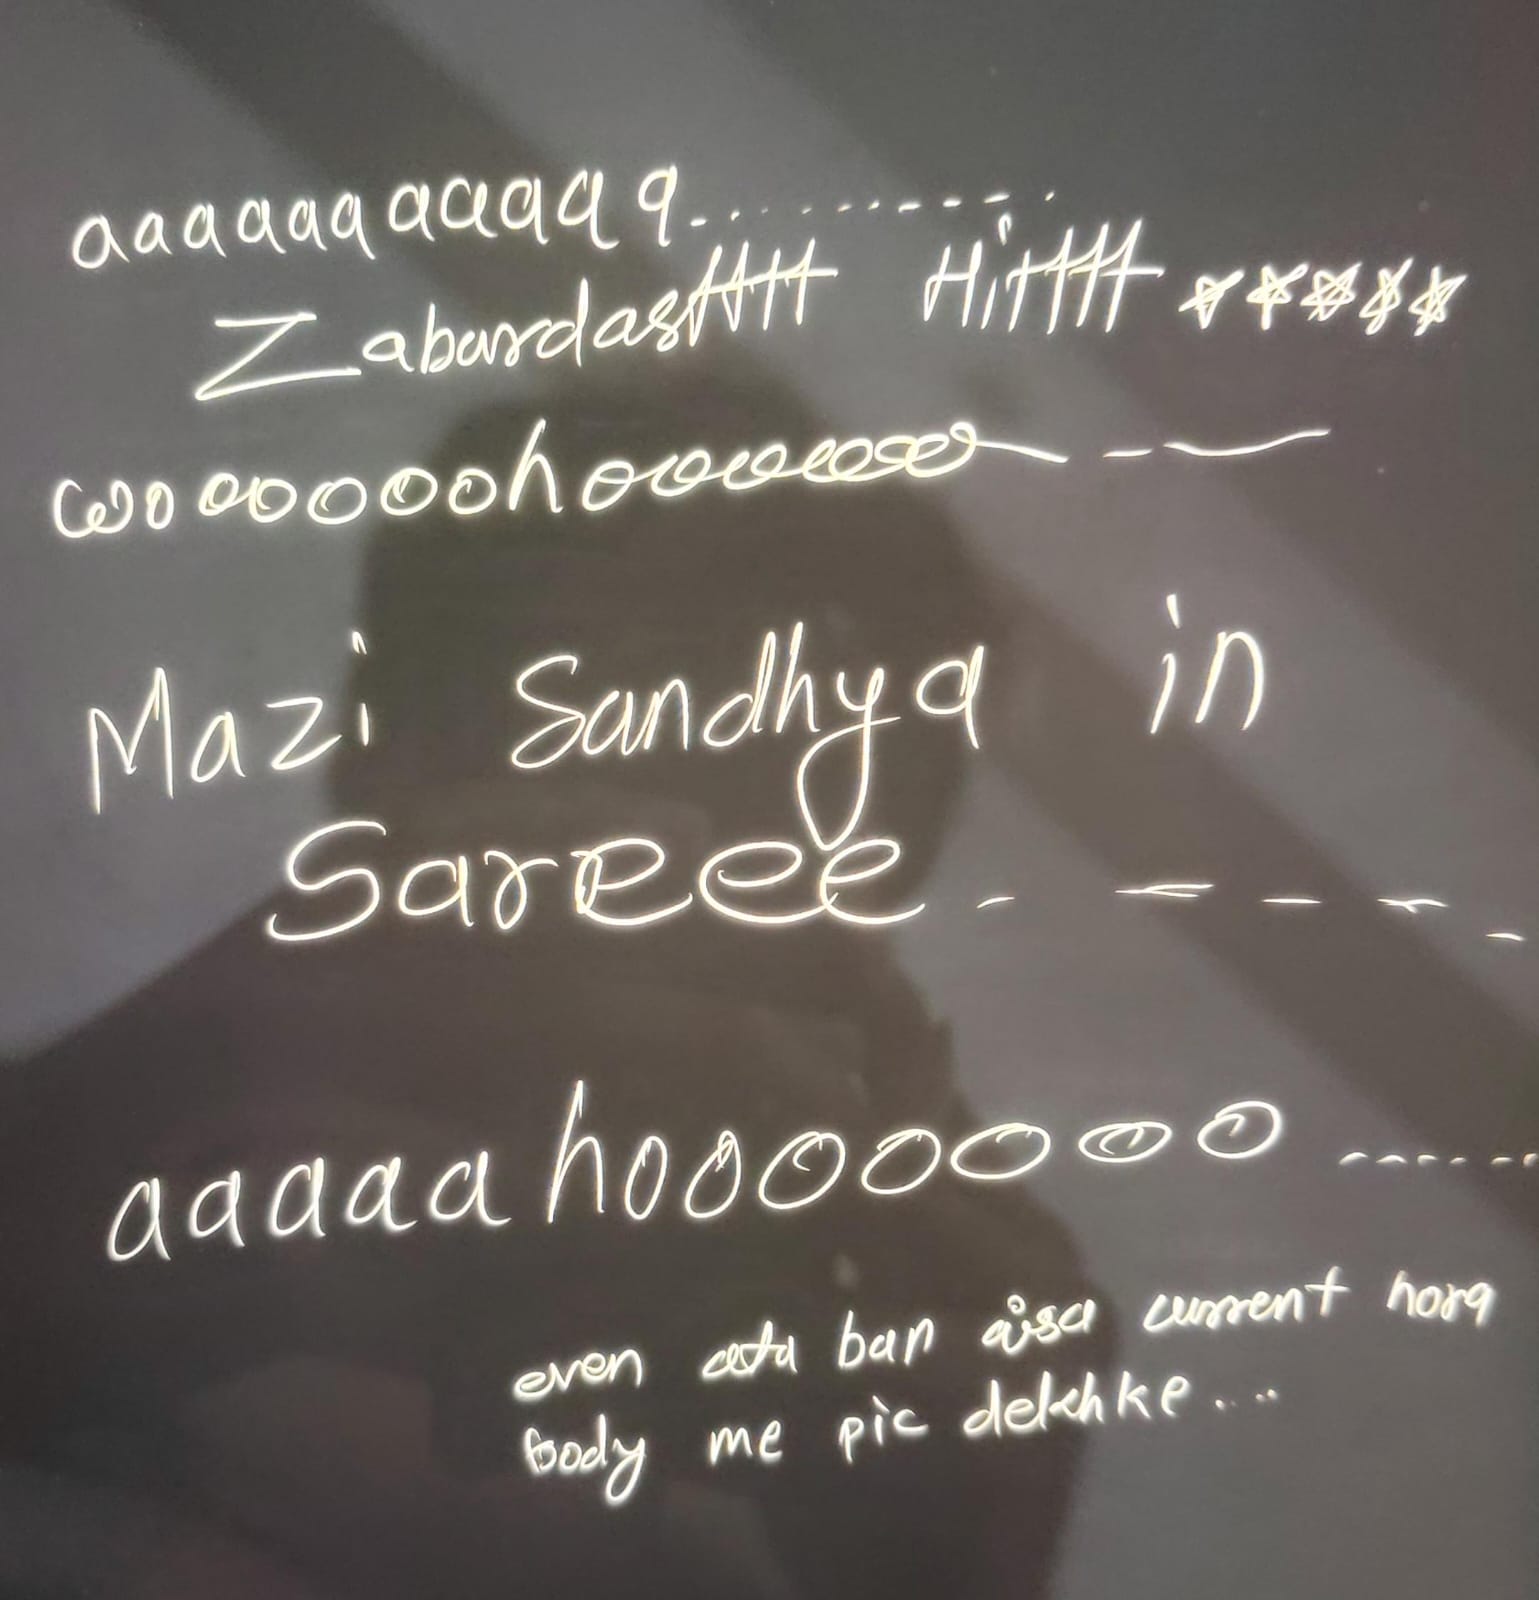 aaaaaaaaaaaa............
Zabardasttttt Hittttt ☆☆☆☆☆
woooooooohoooooooo---
Mazi Sandhya in
Sareee.----
aaaaahoooooooo......
even ata ban aisa current hora
body me pic dekhke....